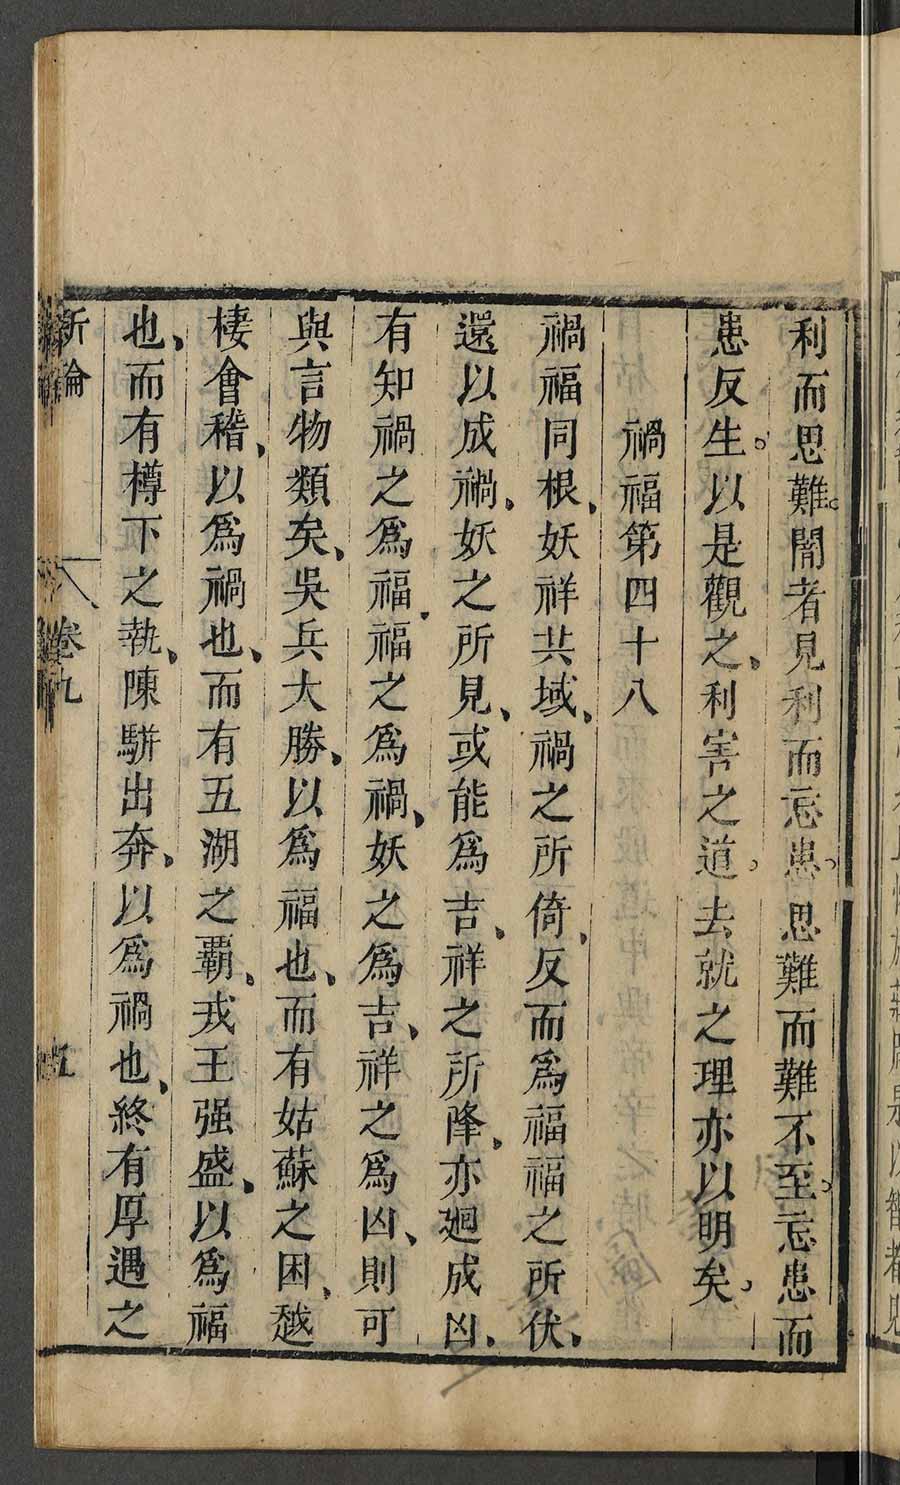 利而思難。闇者見利而忘患。思難而難不至。忘患而
患反生。以是觀之、利害之道。去就之理亦以明矣。
禍福第四十八
禍福同根、妖祥共域、禍之所倚、反而爲福福之所伏、
還以成禍、妖之所見、或能爲吉、祥之所降、亦廻成凶、
有知禍之爲福、福之爲禍、妖之爲吉、祥之爲凶、則可
與言物類矣、吳兵大勝、以爲福也、而有姑蘇之困、越
棲會稽、以爲禍也、而有五湖之覇、戎王强盛、以爲福
也、而有樽下之執、陳駢出奔、以爲禍也、終有厚遇之
新論
卷九
五